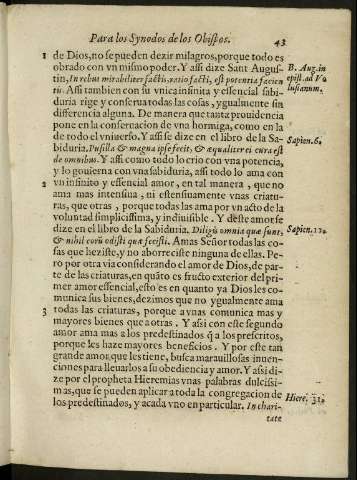 Para los Synodos de los Obispos. 43
1 de Dios, no se pueden dezir milagros, porque todo es
obrado con vn mismo poder. Y assi dize Sant Augus- B. Aug. in
tin, In rebus mirabiliter factis, ratio facti, est potentia facien epist. ad Vo
tis. Assi tambien con su vnica infinita y essencial sabi- lusianum.
duria rige y conserua todas las cosas, ygualmente sin
differencia alguna. De manera que tanta prouidencia
pone en la conseruacion de vna hormiga, como en la
de todo el vniuerso. Y assi se dize en el libro de la Sa- Sapien. 6.
biduria. Pusilla & magna ipse fecit, & æqualiter ei cura est
de omnibus. Y assi como todo lo crio con vna potencia,
y lo gouierna con vna sabiduria, assi todo lo ama con
2 vn infinito y essencial amor, en tal manera, que no
ama mas intensiua, ni estensiuamente vnas criatu-
ras, que otras, porque todas las ama por vn acto de la
voluntad simplicissima, y indiuisible. Y deste amor se
dize en el libro de la Sabiduria. Diligis omnia quæ sunt, Sapien. 11.
& nihil eorū odisti quæ fecisti. Amas Señor todas las co-
sas que heziste, y no aborreciste ninguna de ellas. Pe-
ro por otra via considerando el amor de Dios, de par-
te de las criaturas, en quāto es fructo exterior del pri-
mer amor essencial, esto es en quanto ya Dios les co-
munica sus bienes, dezimos que no ygualmente ama
3 todas las criaturas, porque a vnas comunica mas y
mayores bienes que a otras. Y assi con este segundo
amor ama mas a los predestinados q̄ a los prescitos,
porque les haze mayores beneficios. Y por este tan
grande amor, que les tiene, busca marauillosas inuen-
ciones para lleuarlos a su obediencia y amor. Y assi di-
ze por el propheta Hieremias vnas palabras dulcissi-
mas, que se pueden aplicar a toda la congregacion de Hiere. 31.
los predestinados, y a cada vno en particular. In chari-
tate